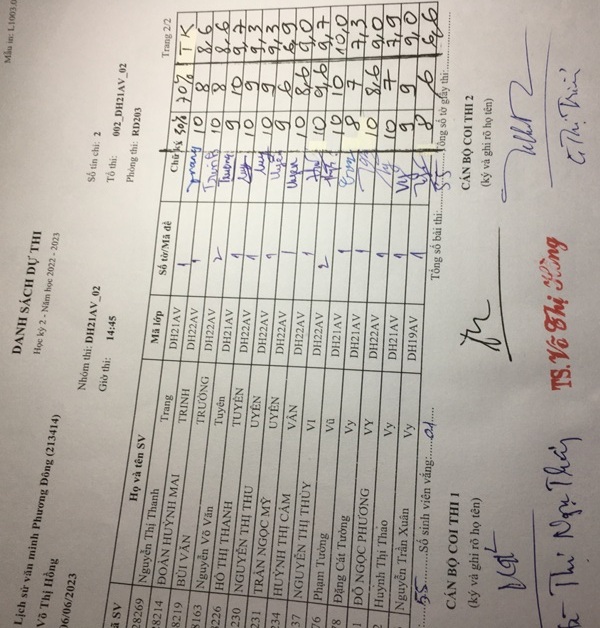 Mẫu in: L1003.0
Lịch sử văn minh Phương Đông (213414)
Võ Thị Hồng
06/06/2023
DANH SÁCH DỰ THI
Học kỳ 2 - Năm học 2022 - 2023
Nhóm thi: DH21AV_02
Giờ thi: 14:45
Số tín chỉ: 2
Tổ thi: 002_DH21AV_02
Phòng thi: RD203
Trang 2/2
ã SV Họ và tên SV Mã lớp Số tờ/Mã đề Chữ ký 30% 70% TK
28269 Nguyễn Thị Thanh Trang DH21AV 1 Trang 10 8 8,6
28214 ĐOÀN HUỲNH MAI TRINH DH22AV 1 10 8 8,6
28219 BÙI VÂN TRƯỜNG DH22AV 2 9 10 9,7
8163 Nguyễn Võ Vân Tuyên DH21AV 1 10 9 9,3
8226 HỒ THỊ THANH TUYỀN DH22AV 1 10 9 9,3
230 NGUYỄN THỊ THU UYÊN DH22AV 1 10 9 9,3
231 TRẦN NGỌC MỸ UYÊN DH22AV 1 9 6 6,9
234 HUỲNH THỊ CẨM VÂN DH22AV 1 10 8,6 9,0
37 NGUYỄN THỊ THÚY VI DH22AV 2 10 9,6 9,7
76 Phạm Tường Vũ DH21AV 1 10 10 10,0
78 Đặng Cát Tường Vy DH21AV 1 8 7 7,3
1 ĐỖ NGỌC PHƯƠNG VY DH22AV 1 10 8,6 9,0
2 Huỳnh Thị Thảo Vy DH21AV 1 10 7 7,9
Nguyễn Trần Xuân Vy DH19AV 1 9 9 9,0
8 6 6,6
55 Số sinh viên vắng: 01 Tổng số bài thi: 55 Tổng số tờ giấy thi:
CÁN BỘ COI THI 1
(ký và ghi rõ họ tên)
CÁN BỘ COI THI 2
(ký và ghi rõ họ tên)
Thị Ngọc Thủy
TS. Võ Thị Hồng